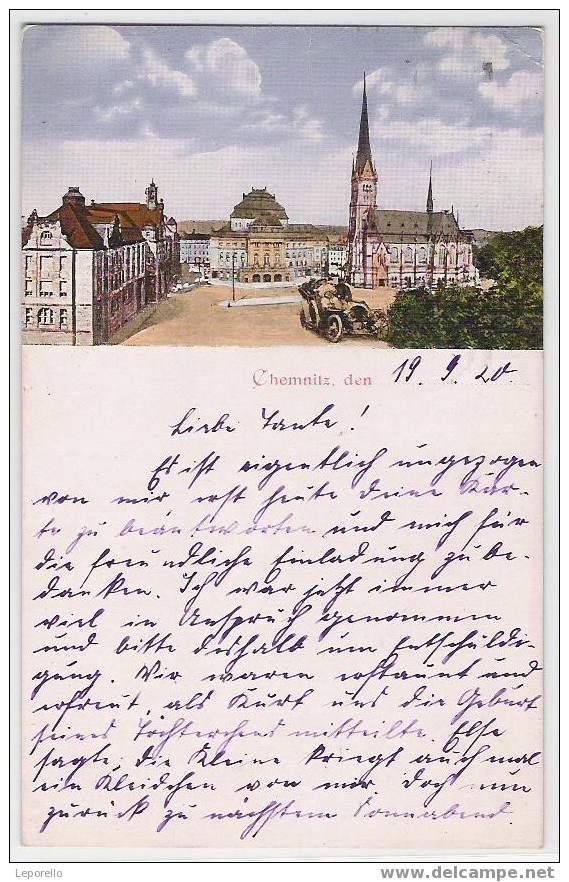 Chemnitz, den 19. 9. 20.
Liebe Tante!
Es ist eigentlich ungezogen
von mir erst heute deine Kar-
te zu beantworten und mich für
die freundliche Einladung zu be-
danken. Ich war jetzt immer
viel in Anspruch genommen
und bitte deshalb um Entschuldi-
gung. Wir waren erstaunt und
erfreut, als Kurt uns die Geburt
seines Töchterchens mitteilte. Else
sagte, die Kleine kriegt auch mal
ein Kleidchen von mir. Doch nun
zurück zu nächstem Sonnabend.
Leporello
www.delcampe.net